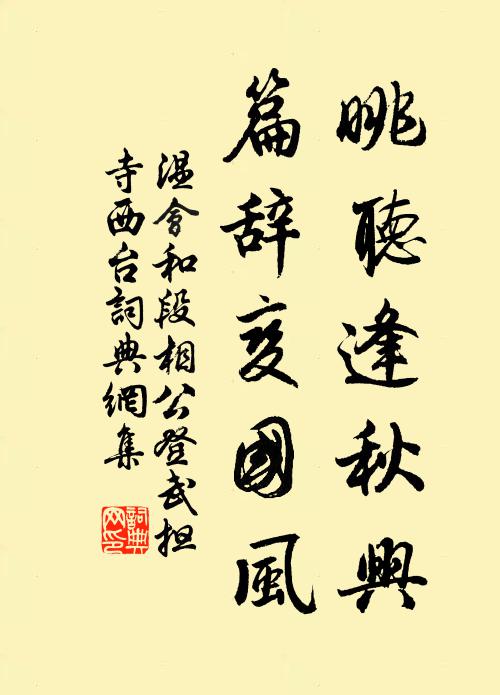 眺聽逢秋興
篇辞变國風
温會和段相公登武担
寺西台詞典網集
詞典网印